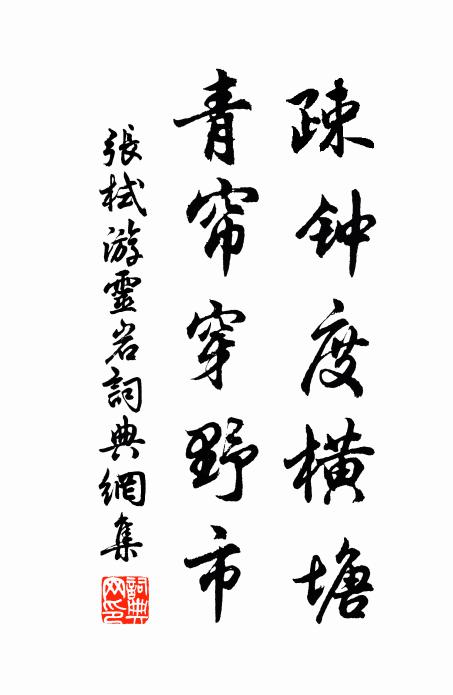 疎钟度横塘
青帘穿野市
張栻游靈岩詞典網集
詞典
网印